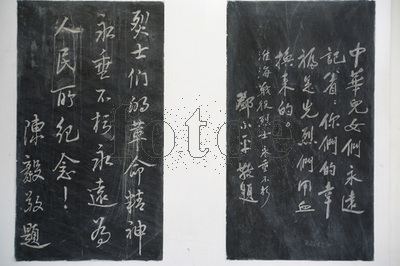 中華兒女們永遠
記着：你們的幸
福是先烈們用血
換来的
淮海戰役烈士永垂不朽
鄧小平敬題
烈士們的革命精神
永垂不朽永遠為
人民所纪念！
陳毅敬題